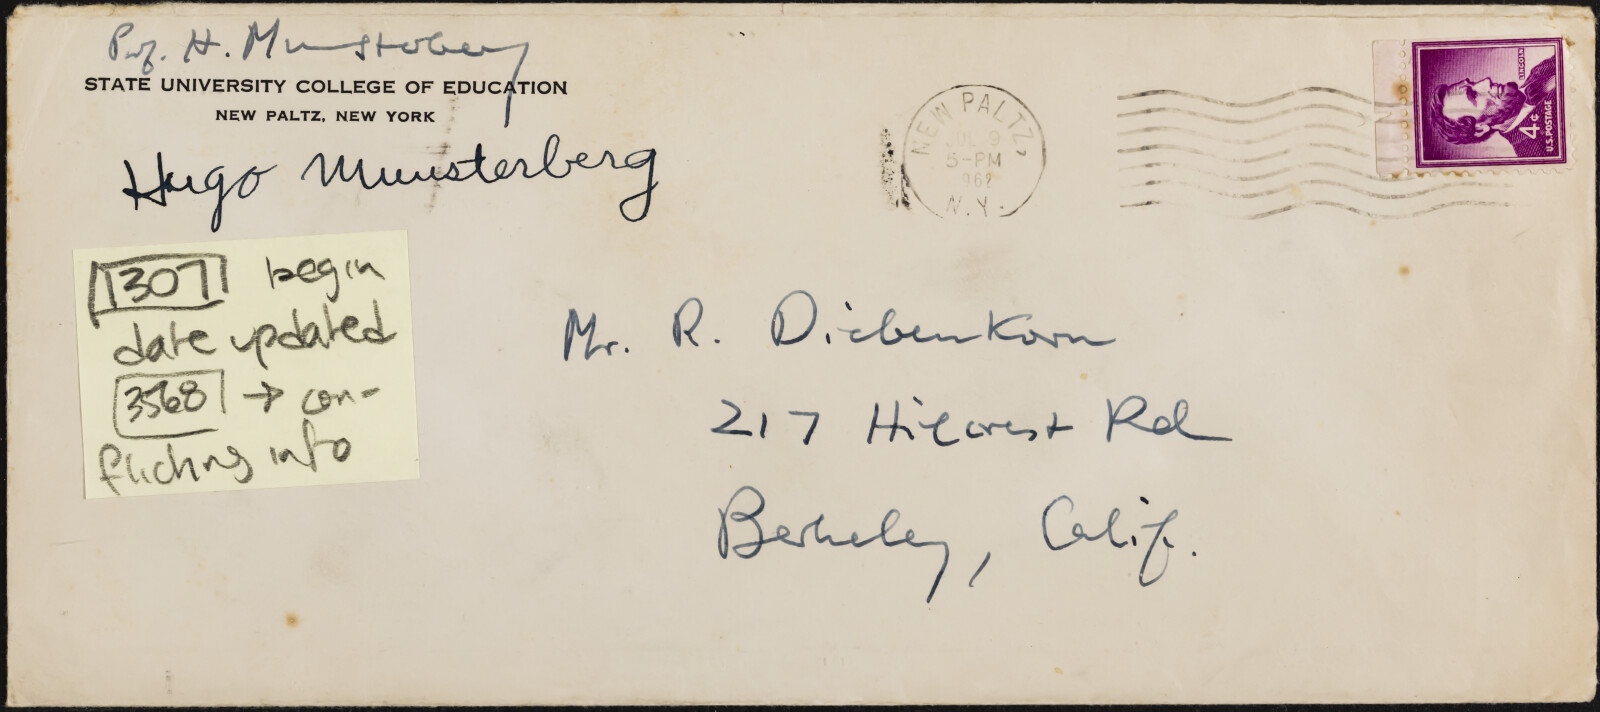 Prof. H. Munsterberg
STATE UNIVERSITY COLLEGE OF EDUCATION
NEW PALTZ, NEW YORK
Hugo Munsterberg
NEW PALTZ,
JUL 9
5-PM
1962
N.Y.
LINCOLN
4¢
U.S. POSTAGE
1307 begin
date updated
3568 → con-
flicting info
Mr. R. Diebenkorn
217 Hillcrest Rd
Berkeley, Calif.